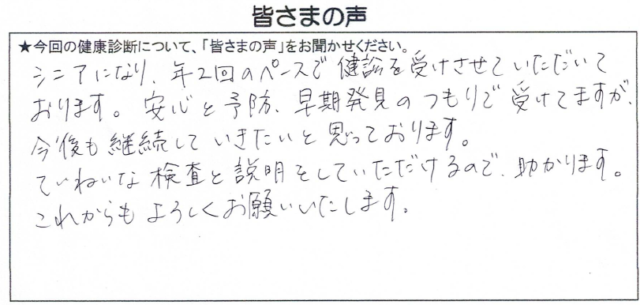 皆さまの声
★今回の健康診断について、「皆さまの声」をお聞かせください。
シニアになり、年2回のペースで健診を受けさせていただいて
おります。安心と予防、早期発見のつもりで受けてますが、
今後も継続していきたいと思っております。
ていねいな検査と説明をしていただけるので、助かります。
これからもよろしくお願いいたします。